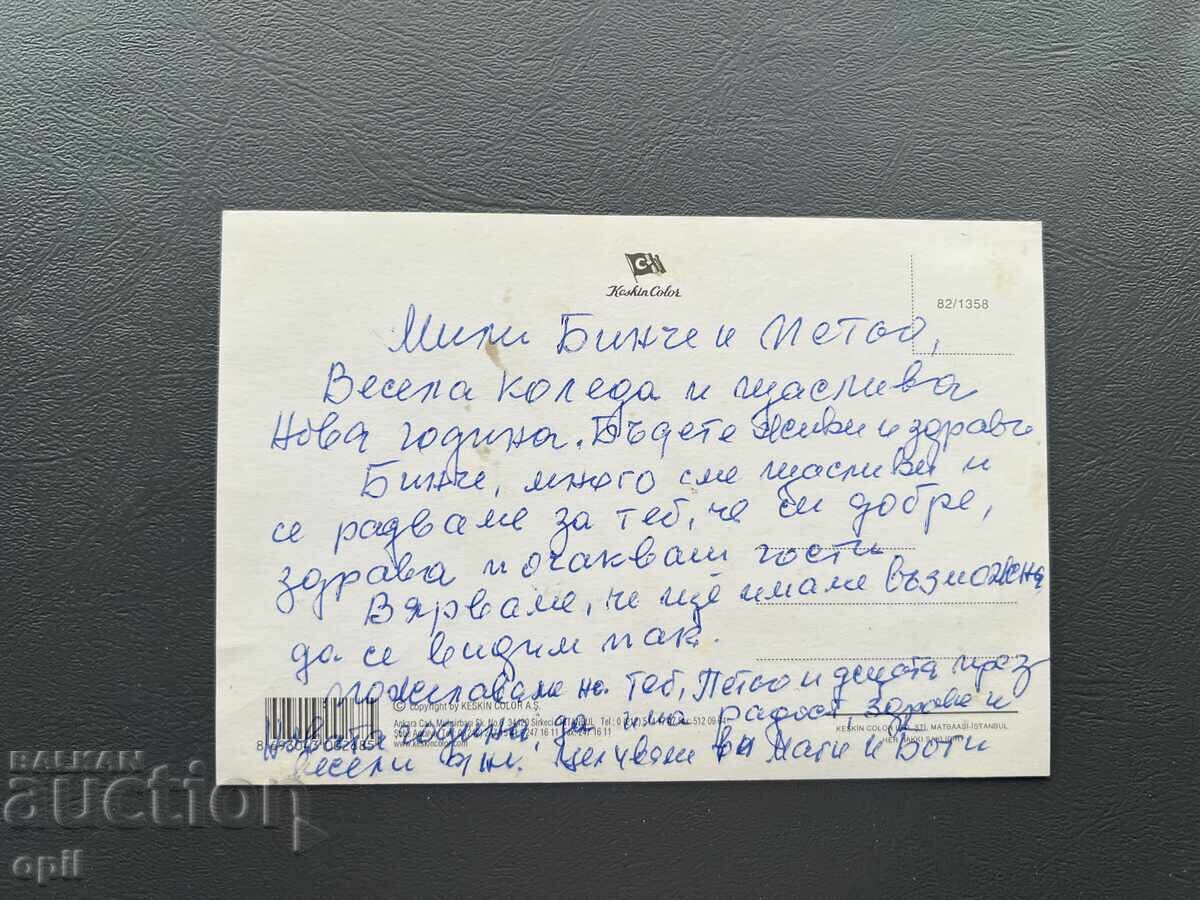 Keskin Color
82/1358
Мили Бинче и Петьо,
Весела Коледа и щастлива
Нова година. Бъдете живи и здрави
Бинче, много сме щастливи и
се радваме за теб, че си добре,
здрава и очакваш гости
Вярваме, че ще имаме възможно
да се видим пак.
Пожелаваме на теб, Петьо и децата през
Новата година, да има радост, здраве и
весели Целуваме ви Нати и Боти
© copyright by KESKIN COLOR A.Ş.
www.keskincolor.com
MATBAASI-İSTANBUL
BALKAN
auction
opil